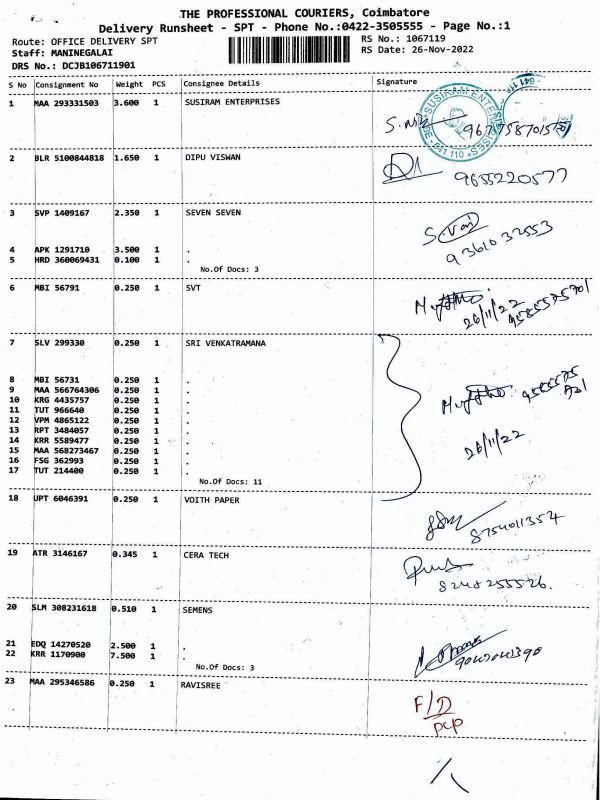 THE PROFESSIONAL COURIERS, Coimbatore
Delivery Runsheet - SPT - Phone No.:0422-3505555 - Page No.:1
Route: OFFICE DELIVERY SPT RS No.: 1067119
Staff: MANINEGALAI RS Date: 26-Nov-2022
DRS No.: DCJB106711901
S No Consignment No Weight PCS Consignee Details Signature
1 MAA 293331503 3.600 1 SUSIRAM ENTERPRISES
641 110
2 BLR 5100844818 1.650 1 DIPU VISWAN
9655220577
3 SVP 1409167 2.350 1 SEVEN SEVEN
9361032553
4 APK 1291710 3.500 1 .
5 HRD 360069431 0.100 1 .
No.Of Docs: 3
6 MBI 56791 0.250 1 SVT
26/11/22
7 SLV 299330 0.250 1 SRI VENKATRAMANA
8 MBI 56731 0.250 1 .
9 MAA 566764306 0.250 1 .
10 KRG 4435757 0.250 1 .
11 TUT 966640 0.250 1 .
12 VPM 4865122 0.250 1 .
13 RPT 3484057 0.250 1 .
14 KRR 5589477 0.250 1 .
15 MAA 568273467 0.250 1 .
16 FSG 362993 0.250 1 .
17 TUT 214400 0.250 1 .
26/11/22
No.Of Docs: 11
18 UPT 6046391 0.250 1 VOITH PAPER
8754011354
19 ATR 3146167 0.345 1 CERA TECH
8248255526.
20 SLM 308231618 0.510 1 SEMENS
21 EDQ 14270520 2.500 1 .
22 KRR 1170900 7.500 1 .
No.Of Docs: 3
23 MAA 295346586 0.250 1 RAVISREE
F/D
pcp